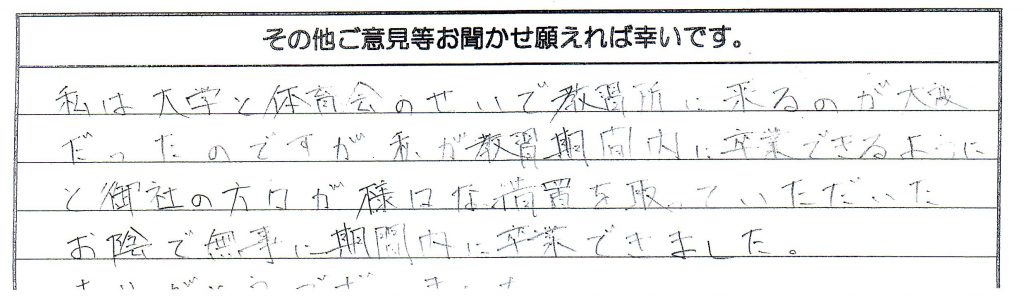 その他ご意見等お聞かせ願えれば幸いです。
私は大学と体育会のせいで教習所に来るのが大変
だったのですが、私が教習期間内に卒業できるように
と御社の方々が様々な措置を取っていただいた
お陰で無事に期間内に卒業できました。
ありがとうございました